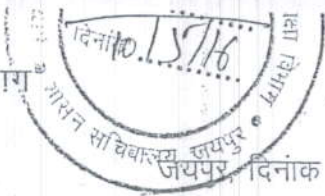 दिनांक 15/7/16
ग
शासन सचिवालय जयपुर
विभाग
जयपुर दिनांक